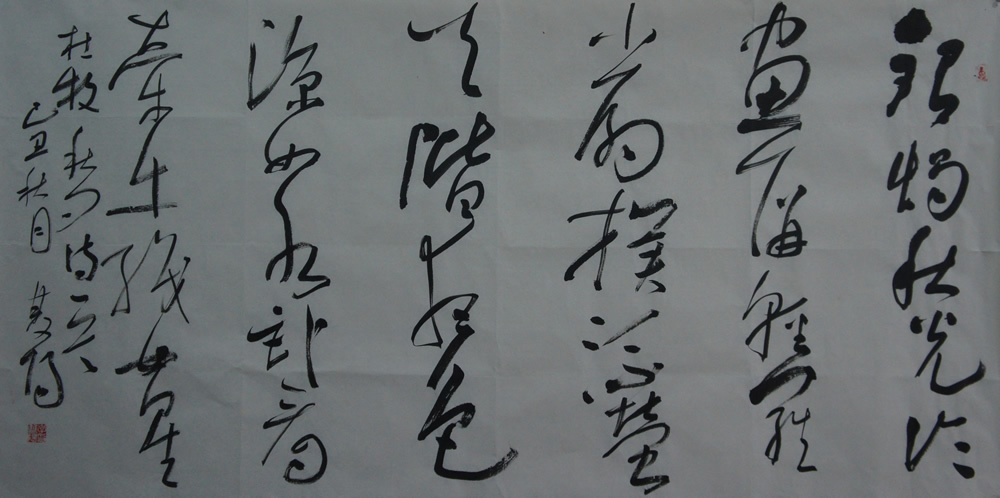 銀燭秋光冷
畫屏輕羅
小扇撲流螢
天階夜色
涼如水卧看
牽牛織女星
杜牧秋夕诗一首
己丑秋月